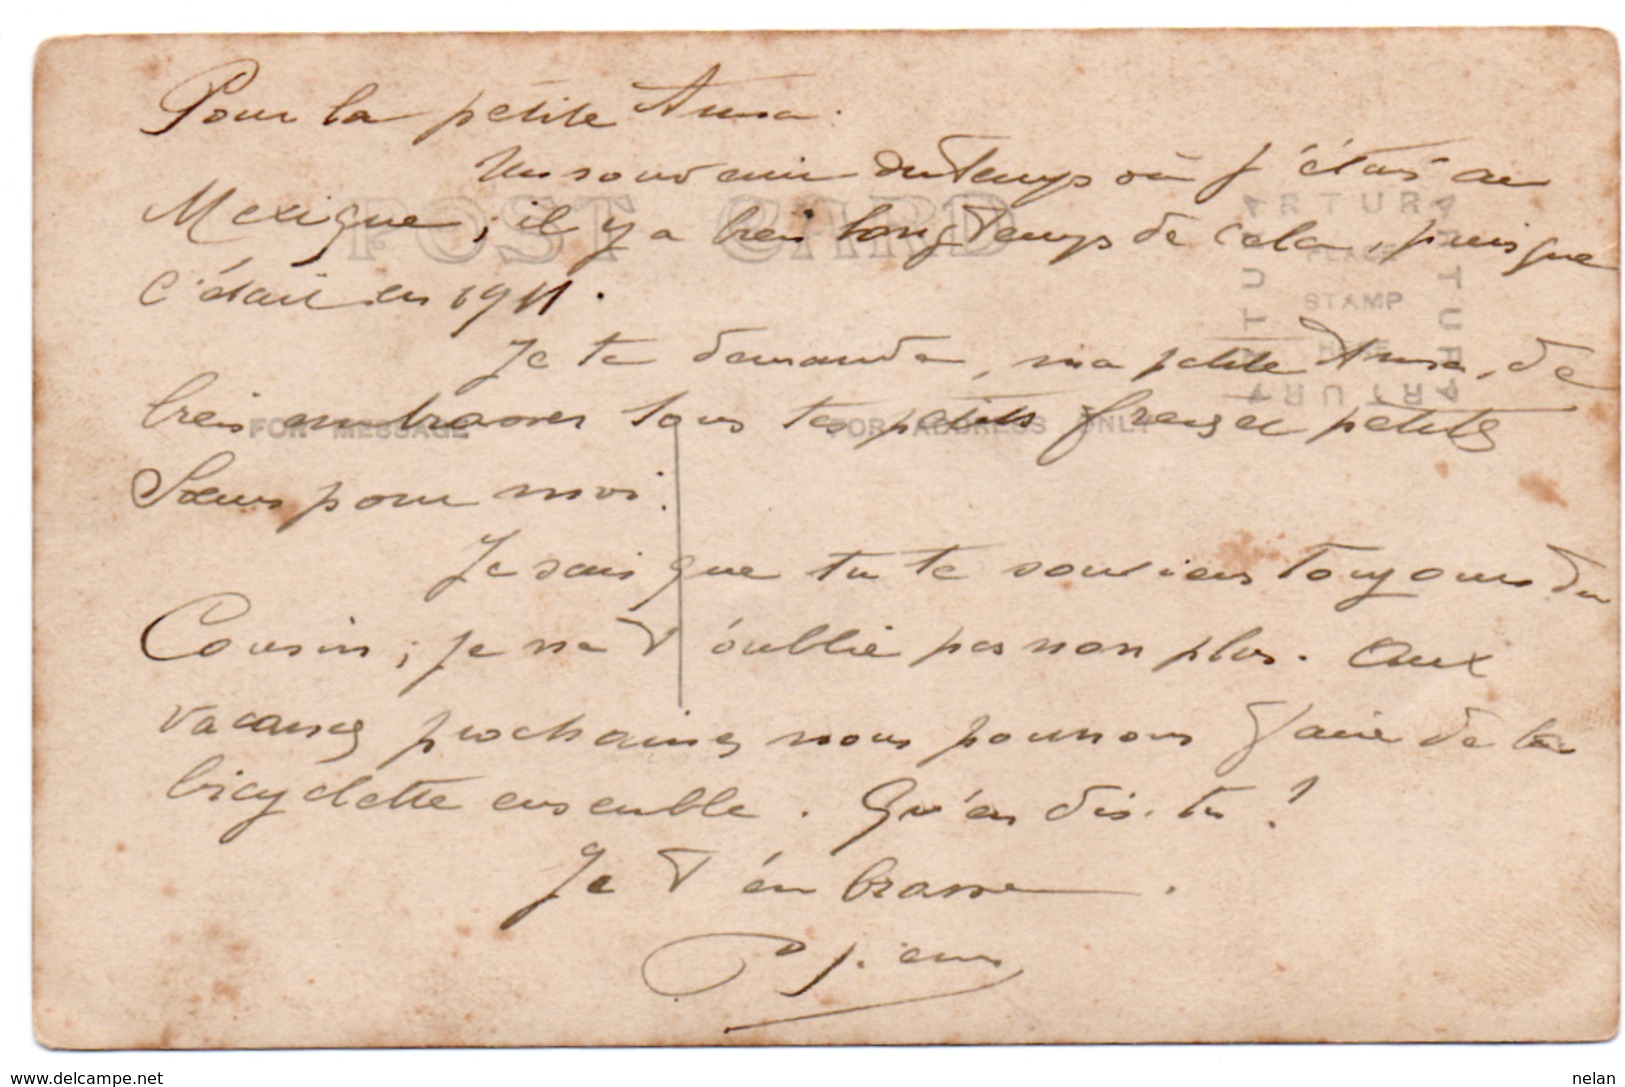 Pour la petite Anna.
Un souvenir du temps où j'étais au
Mexique ; il y a bien longtemps de cela, puisque
c'était en 1911.
Je te demande, ma petite Anna, de
bien embrasser tous tes petits frères et petites
Sœurs pour moi.
Je sais que tu te souviens toujours du
Cousin ; je ne t'oublie pas non plus. Aux
vacances prochaines nous pourrons faire de la
bicyclette ensemble. Qu'en dis-tu ?
Je t'embrasse.
POST CARD
ARTURA
ARTURA
ARTURA
ARTURA
PLACE
STAMP
HERE
FOR MESSAGE
FOR ADDRESS ONLY
www.delcampe.net
nelan